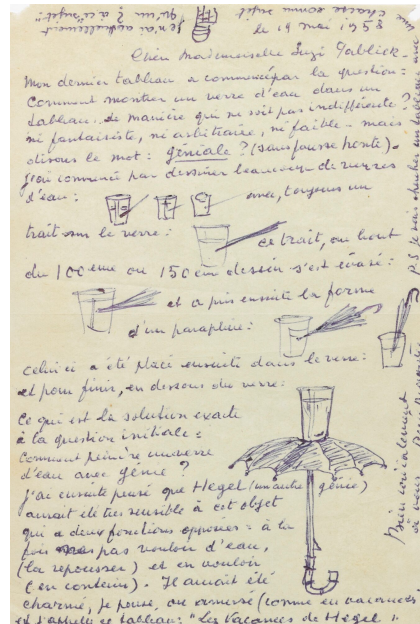 le 19 mai 1958
Chère Mademoiselle Suzi Gablick -
Mon dernier tableau a commencé par la question :
Comment montrer un verre d'eau dans un
tableau de manière qui ne soit pas indifférente
ni fantaisiste, ni arbitraire, ni faible - mais
disons le mot : géniale ? (sans fausse honte).
j'ai commencé par dessiner beaucoup de verres
d'eau : avec, toujours un
trait sur le verre : ce trait, au bout
du 100ème ou 150ème dessin s'est évasé :
et a pris ensuite la forme
d'un parapluie :
celui ci a été placé ensuite dans le verre :
et pour finir, en dessous du verre :
Ce qui est la solution exacte
à la question initiale :
Comment peindre un verre
d'eau avec génie ?
J'ai ensuite pensé que Hegel (un autre génie)
aurait été très sensible à cet objet
qui a deux fonctions opposées : à la
fois pas vouloir d'eau,
(la repousser) et en vouloir
(en contenir). Il aurait été
charmé, je pense, ou amusé (comme en vacances)
et j'appelle ce tableau : "Les Vacances de Hegel"
Bien cordialement
à vous
P.S. Je vais chercher un tableau avec une
chaise comme sujet
Je n'ai actuellement
qu'un ? à ce "sujet"